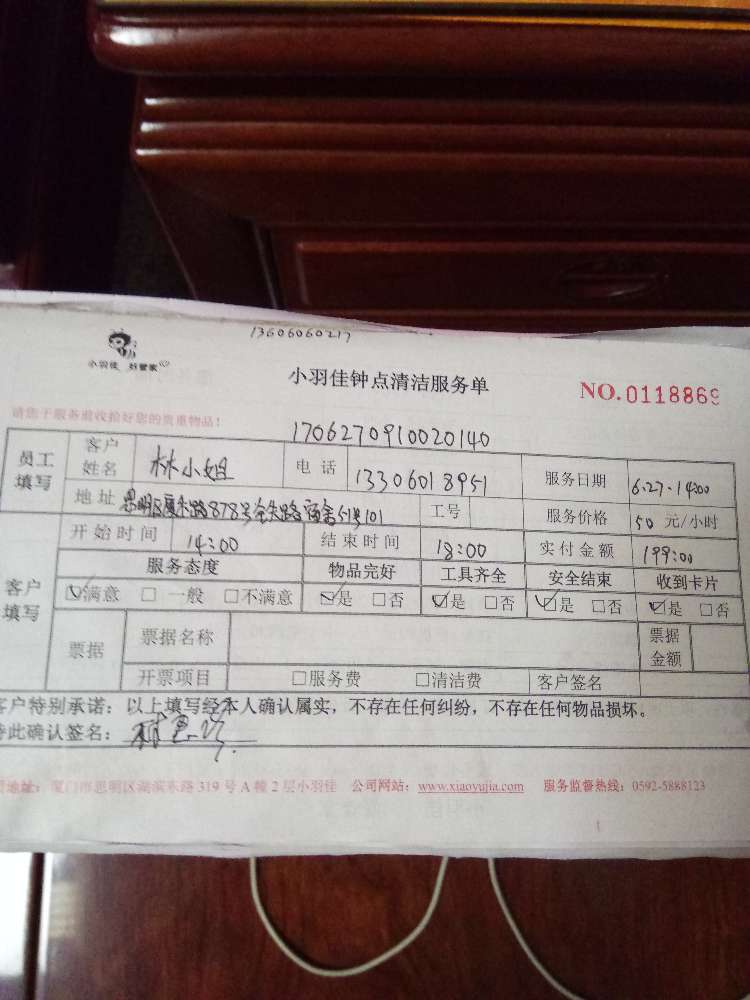 13606060217
小羽佳 好管家
小羽佳钟点清洁服务单
NO.0118869
请您于服务前收拾好您的贵重物品!
1706270910020140
员工填写 客户姓名 林小姐 电话 13306018951 服务日期 6.27.14:00
地址 思明区厦禾路878号 宿舍51号101 工号 服务价格 50 元/小时
客户填写 开始时间 14:00 结束时间 18:00 实付金额 199:00
服务态度 物品完好 工具齐全 安全结束 收到卡片
☑满意 □一般 □不满意 ☑是 □否 ☑是 □否 ☑是 □否 ☑是 □否
票据 票据名称 票据金额
开票项目 □服务费 □清洁费 客户签名
客户特别承诺:以上填写经本人确认属实,不存在任何纠纷,不存在任何物品损坏。
特此确认签名:
地址:厦门市思明区湖滨东路319号A幢2层小羽佳 公司网站:www.xiaoyujia.com 服务监督热线:0592-5888123